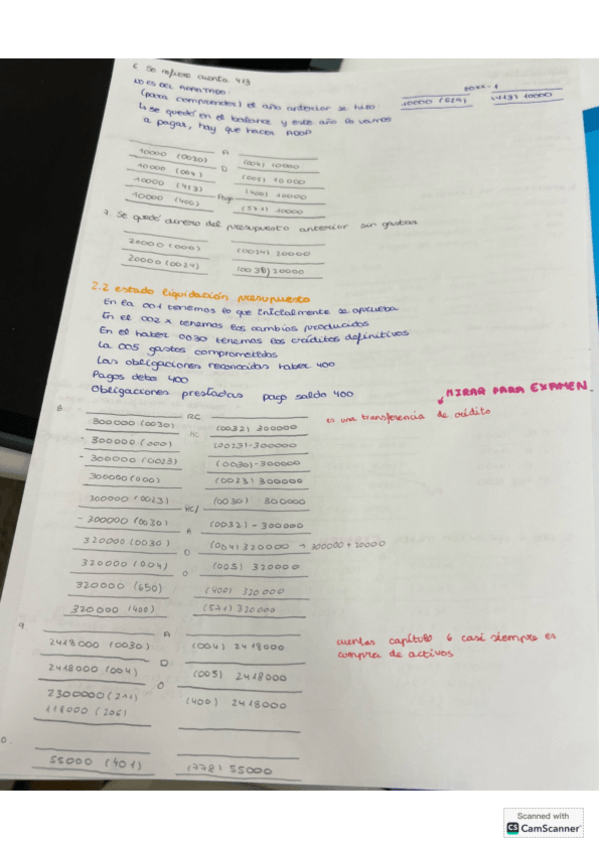 6 Se refiere cuenta 413
NO ES DEL
(para comprender) el año anterior se hizo: 10000 (629) (413) 10000
↳ se quedó en el balance y este año lo vamos
a pagar, hay que hacer ADOP
10000 (0030) A (004) 10000
10000 (004) D (005) 10000
10000 (413) (400) 10000
10000 (400) Pago (571) 10000
7. Se quedó dinero del presupuesto anterior sin gastar
20000 (000) (0024) 20000
20000 (0024) (0030) 20000
2.2 estado liquidación presupuesto
En la 001 tenemos lo que inicialmente se aprueba
En el 002 x tenemos los cambios producidos
En el haber 0030 tenemos los créditos definitivos
La 005 gastos comprometidos
Las obligaciones reconocidas haber 400
Pagos debe 400
Obligaciones prestadas pago saldo 400
MIRAR PARA EXAMEN.
8 300000 (0030) RC (0032) 300000 es una transferencia de crédito
- 300000 (000) (0023) -300000
- 300000 (0023) (0030) -300000
300000 (000) (0023) 300000
300000 (0023) (0030) 300000
- 300000 (0030) RC/ (0032) -300000
320000 (0030) A (004) 320000 → 300000 + 20000
320000 (004) D (005) 320000
320000 (650) O (400) 320000
320000 (400) (571) 320000
9
2418000 (0030) A (004) 2418000 cuentas capítulo 6 casi siempre es
compra de activos
2418000 (004) D (005) 2418000
2300000 (211) O (400) 2418000
118000 (206)
55000 (401) (778) 55000
Scanned with
CS CamScanner